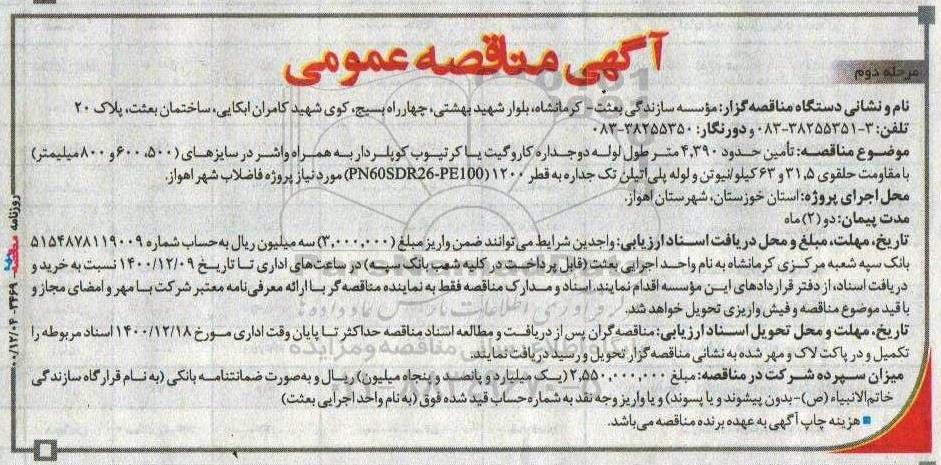 آگهی مناقصه عمومی
مرحله دوم
نام و نشانی دستگاه مناقصه گزار: مؤسسه سازندگی بعثت- کرمانشاه، بلوار شهید بهشتی، چهارراه بسیج، کوی شهید کامران ابکایی، ساختمان بعثت، پلاک ۲۰
تلفن: ۳-۳۸۲۵۵۳۵۱-۰۸۳ و دورنگار: ۳۸۲۵۵۳۵۰-۰۸۳
موضوع مناقصه: تأمین حدود ۴,۳۹۰ متر طول لوله دوجداره کاروگیت یا کر تیوب کوپلردار به همراه واشر در سایزهای (۵۰۰، ۶۰۰ و ۸۰۰ میلیمتر)
با مقاومت حلقوی ۳۱,۵ و ۶۳ کیلو/نیوتن و لوله پلی اتیلن تک جداره به قطر ۱۲۰۰ (PN60SDR26-PE100) مورد نیاز پروژه فاضلاب شهر اهواز.
محل اجرای پروژه: استان خوزستان، شهرستان اهواز.
مدت پیمان: دو (۲) ماه
تاریخ، مهلت، مبلغ و محل دریافت اسناد ارزیابی: واجدین شرایط می توانند ضمن واریز مبلغ (۳,۰۰۰,۰۰۰) سه میلیون ریال به حساب شماره ۵۱۵۴۸۷۸۱۱۹۰۰۹
بانک سپه شعبه مرکزی کرمانشاه به نام واحد اجرایی بعثت (قابل پرداخت در کلیه شعب بانک سپه) در ساعت های اداری تا تاریخ ۱۴۰۰/۱۲/۰۹ نسبت به خرید و
دریافت اسناد، از دفتر قراردادهای این مؤسسه اقدام نمایند. اسناد و مدارک مناقصه فقط به نماینده مناقصه گر با ارائه معرفی نامه معتبر شرکت با مهر و امضای مجاز و
با قید موضوع مناقصه و فیش واریزی تحویل خواهد شد.
تاریخ، مهلت و محل تحویل اسناد ارزیابی: مناقصه گران پس از دریافت و مطالعه اسناد مناقصه حداکثر تا پایان وقت اداری مورخ ۱۴۰۰/۱۲/۱۸ اسناد مربوطه را
تکمیل و در پاکت لاک و مهر شده به نشانی مناقصه گزار تحویل و رسید دریافت نمایند.
میزان سپرده شرکت در مناقصه: مبلغ ۲,۵۵۰,۰۰۰,۰۰۰ (یک میلیارد و پانصد و پنجاه میلیون) ریال و به صورت ضمانتنامه بانکی (به نام قرارگاه سازندگی
خاتم الانبیاء (ص)-بدون پیشوند و یا پسوند) و یا واریز وجه نقد به شماره حساب قید شده فوق (به نام واحد اجرایی بعثت)
■ هزینه چاپ آگهی به عهده برنده مناقصه می باشد.